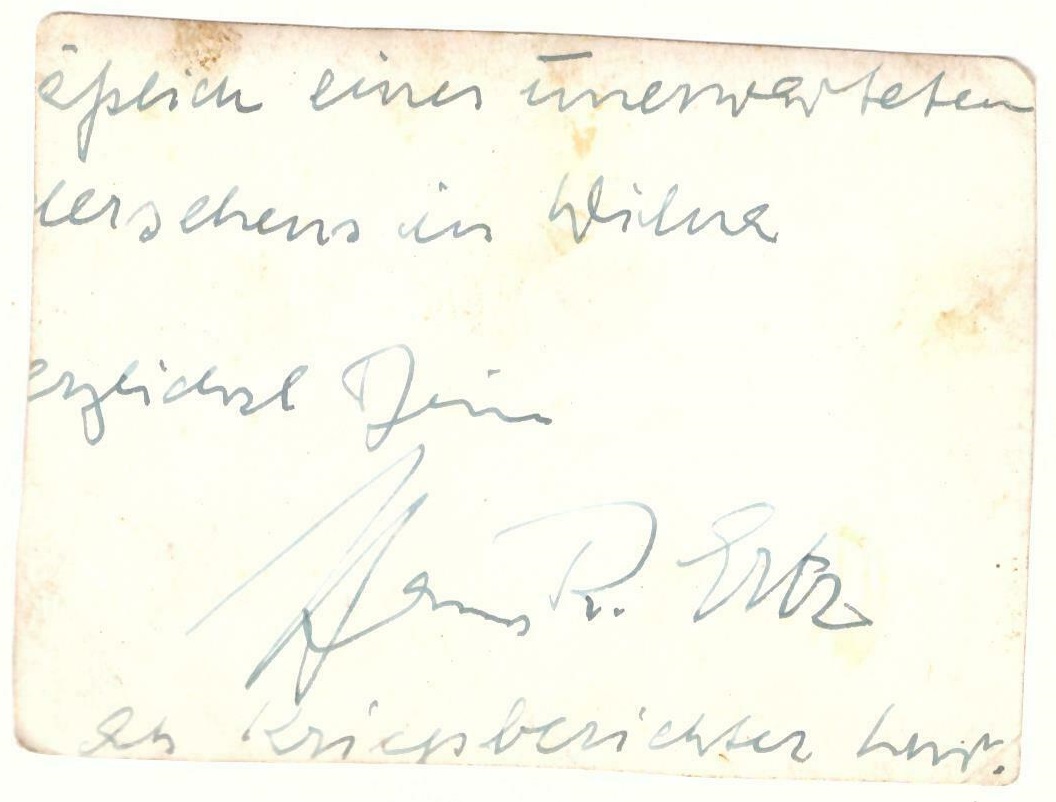 äßlich eines unerwarteten
dersehens in Wilna
erzlichst Dein
Hans R. Ertz
als Kriegsberichter